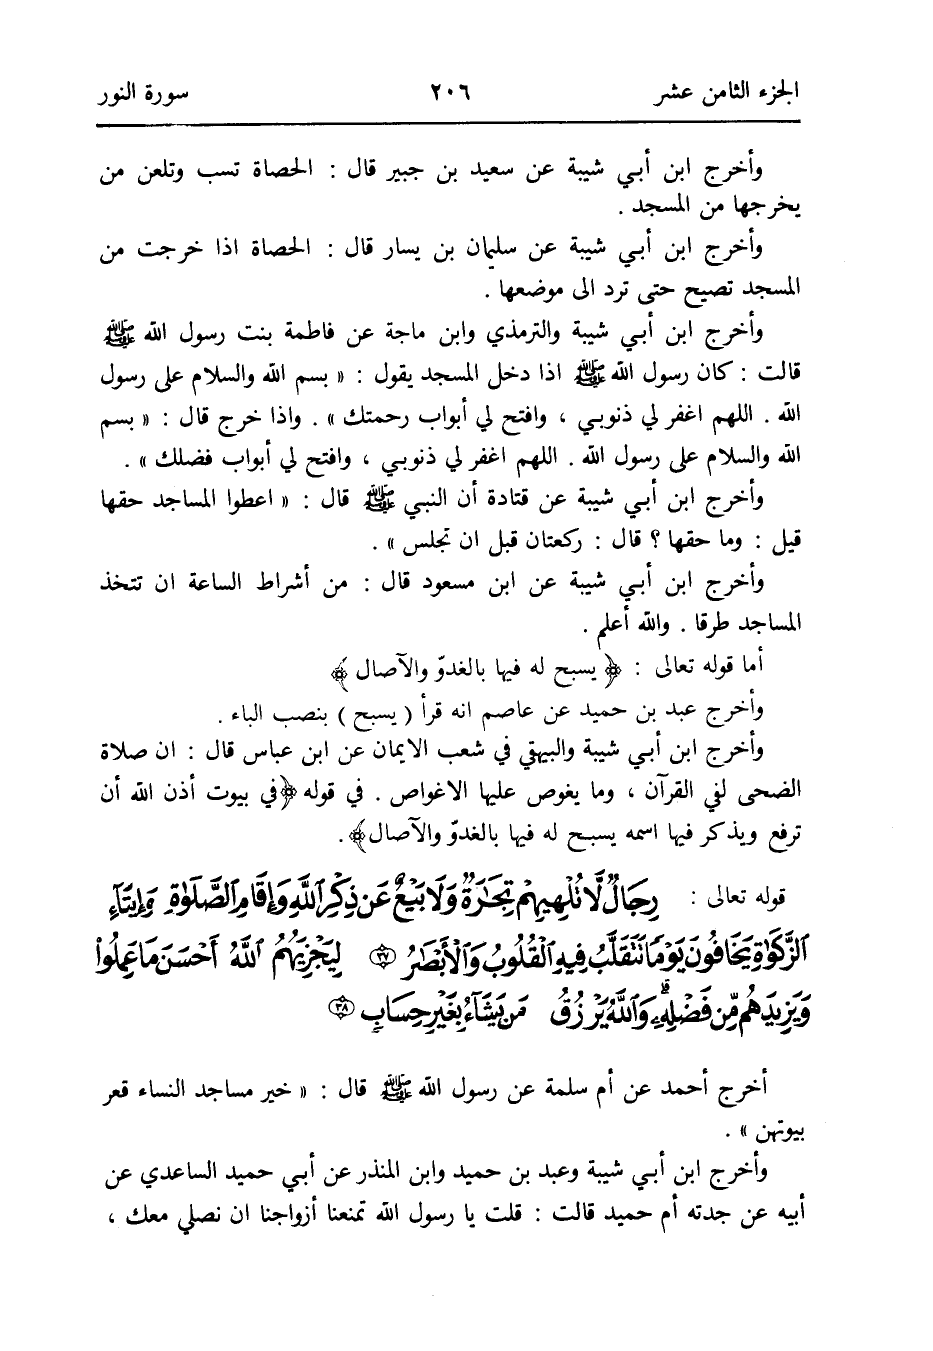 الجزء الثامن عشر ٢٠٦ سورة النور
وأخرج ابن أبي شيبة عن سعيد بن جبير قال : الحصاة تسب وتلعن من
يخرجها من المسجد .
وأخرج ابن أبي شيبة عن سليمان بن يسار قال : الحصاة اذا خرجت من
المسجد تصيح حتى ترد الى موضعها .
وأخرج ابن أبي شيبة والترمذي وابن ماجة عن فاطمة بنت رسول الله ﷺ
قالت : كان رسول الله ﷺ اذا دخل المسجد يقول : « بسم الله والسلام على رسول
الله . اللهم اغفر لي ذنوبي ، وافتح لي أبواب رحمتك » . واذا خرج قال : « بسم
الله والسلام على رسول الله . اللهم اغفر لي ذنوبي ، وافتح لي أبواب فضلك » .
وأخرج ابن أبي شيبة عن قتادة أن النبي ﷺ قال : « اعطوا المساجد حقها
قيل : وما حقها ؟ قال : ركعتان قبل ان تجلس » .
وأخرج ابن أبي شيبة عن ابن مسعود قال : من أشراط الساعة ان تتخذ
المساجد طرقا . والله أعلم .
أما قوله تعالى : ﴿ يسبح له فيها بالغدوّ والآصال ﴾
وأخرج عبد بن حميد عن عاصم انه قرأ ( يسبح ) بنصب الباء .
وأخرج ابن أبي شيبة والبيهقي في شعب الايمان عن ابن عباس قال : ان صلاة
الضحى لفي القرآن ، وما يغوص عليها الاغواص . في قوله ﴿في بيوت أذن الله أن
ترفع ويذكر فيها اسمه يسبح له فيها بالغدوّ والآصال﴾.
قوله تعالى : رِجَالٌ لَّا تُلْهِيهِمْ تِجَٰرَةٌ وَلَا بَيْعٌ عَن ذِكْرِ ٱللَّهِ وَإِقَامِ ٱلصَّلَوٰةِ وَإِيتَآءِ
ٱلزَّكَوٰةِ يَخَافُونَ يَوْمًا تَتَقَلَّبُ فِيهِ ٱلْقُلُوبُ وَٱلْأَبْصَٰرُ ٣٧ لِيَجْزِيَهُمُ ٱللَّهُ أَحْسَنَ مَا عَمِلُوا۟
وَيَزِيدَهُم مِّن فَضْلِهِۦ ۗ وَٱللَّهُ يَرْزُقُ مَن يَشَآءُ بِغَيْرِ حِسَابٍ ٣٨
أخرج أحمد عن أم سلمة عن رسول الله ﷺ قال : « خير مساجد النساء قعر
بيوتهن » .
وأخرج ابن أبي شيبة وعبد بن حميد وابن المنذر عن أبي حميد الساعدي عن
أبيه عن جدته أم حميد قالت : قلت يا رسول الله تمنعنا أزواجنا ان نصلي معك ،